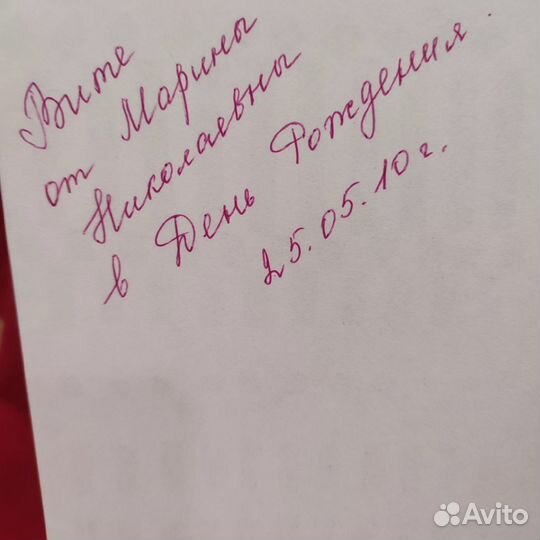 Вите
от Марины
Николаевны
в День Рождения.
25.05.10г.
Avito